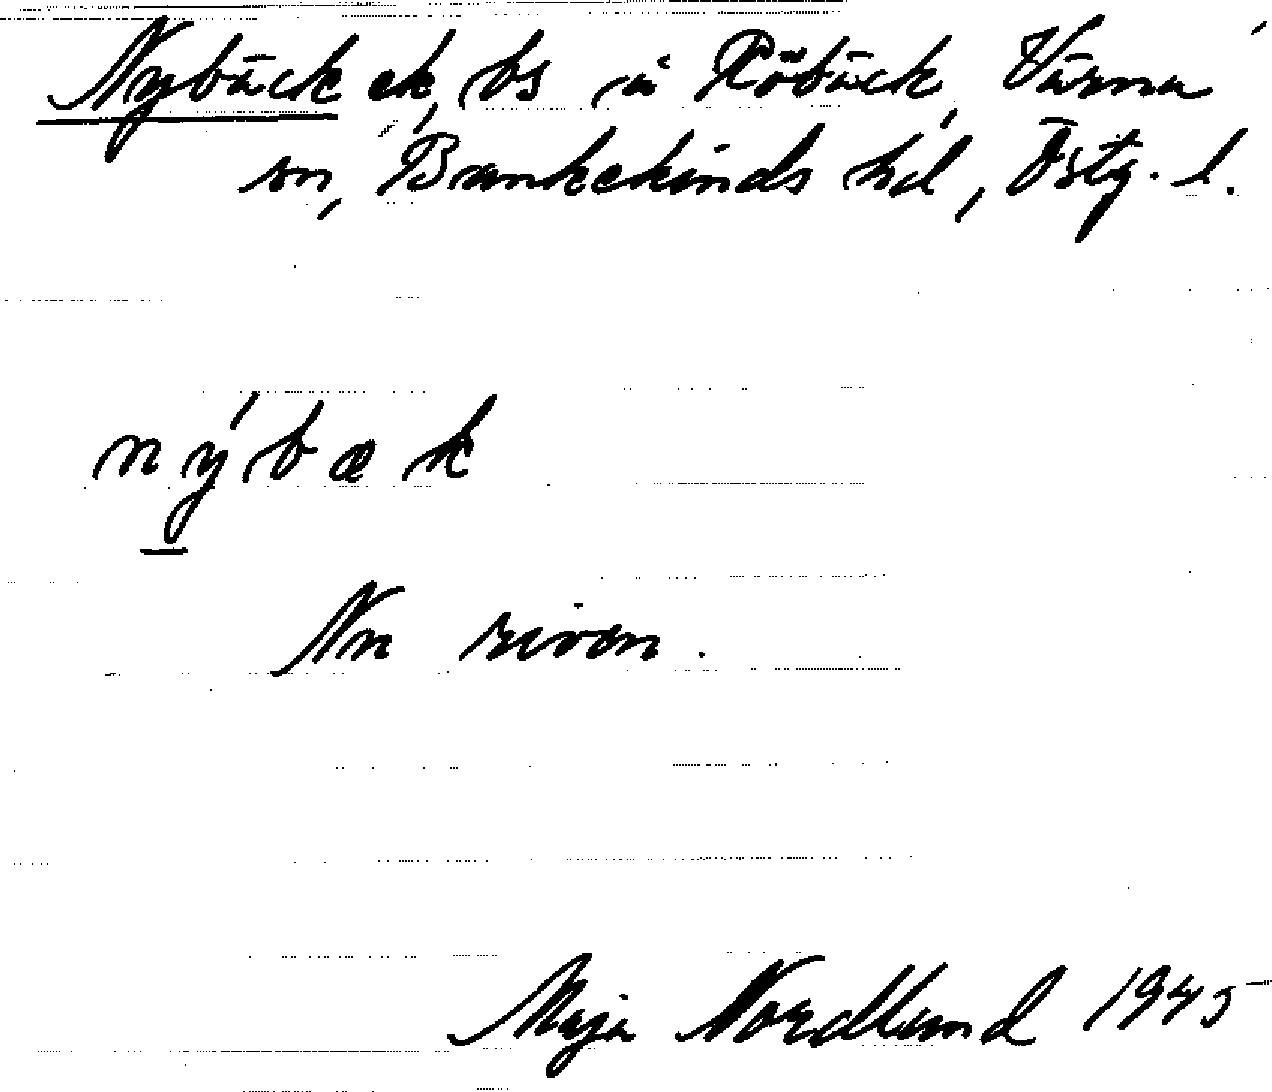 Nybäck ek, bs å Röbäck, Vårna
sn, Bankekinds hd, Östg. l.
nýbæk
Nn riven.
Maja Nordlund 1945